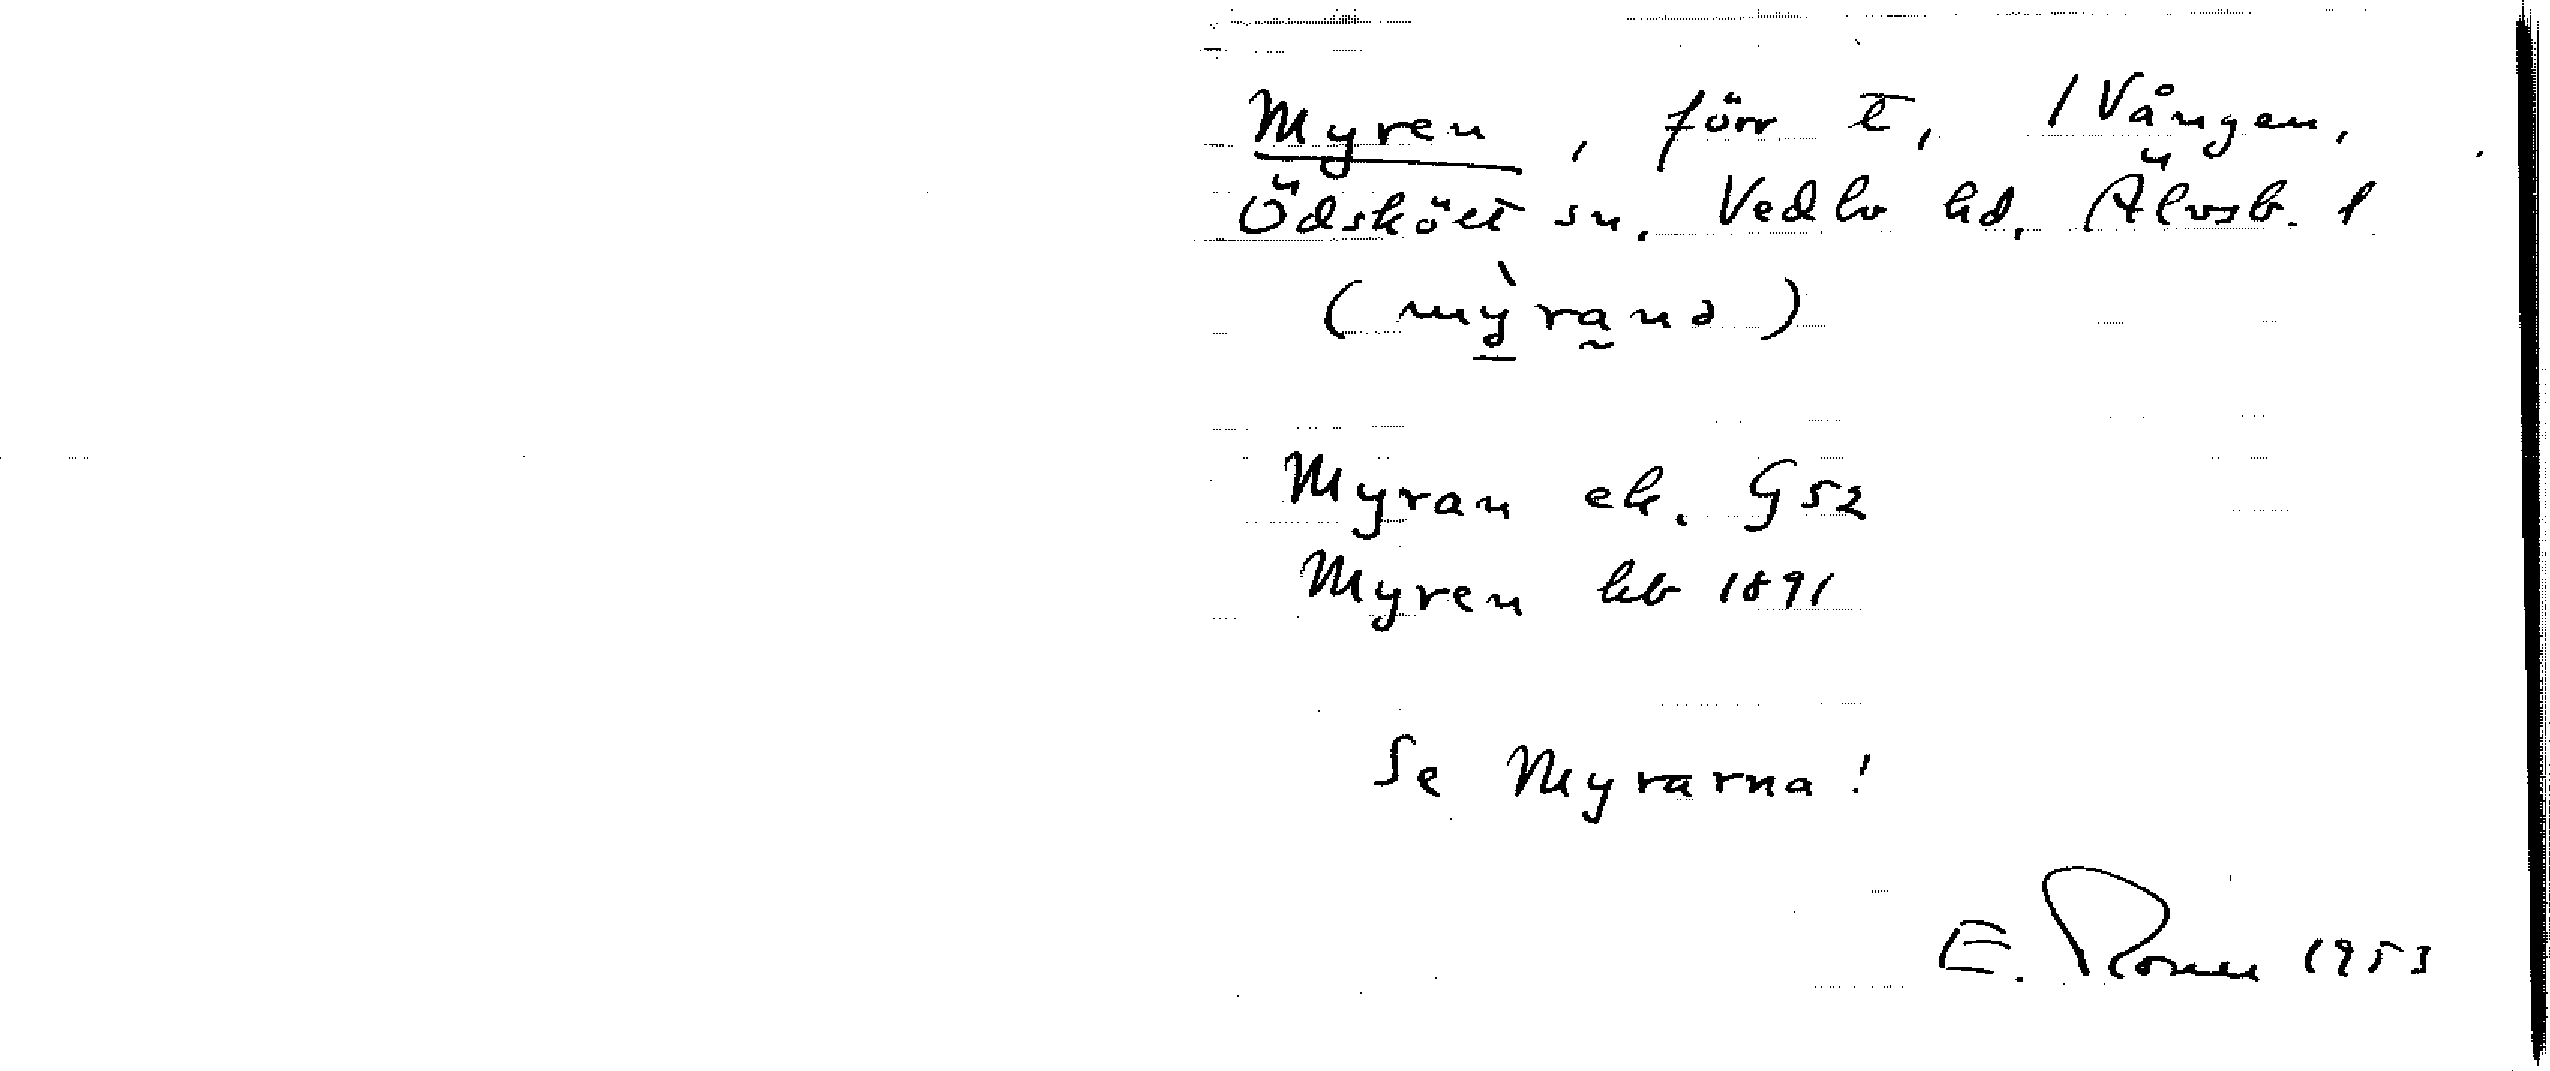 Myren, förr t, 1 Vången,
Ödskölt sn. Vedbo hd. Älvsb. l
(mỳranə)
Myran ek. G52
Myren kb 1891
Se Myrarna!
E. 1953